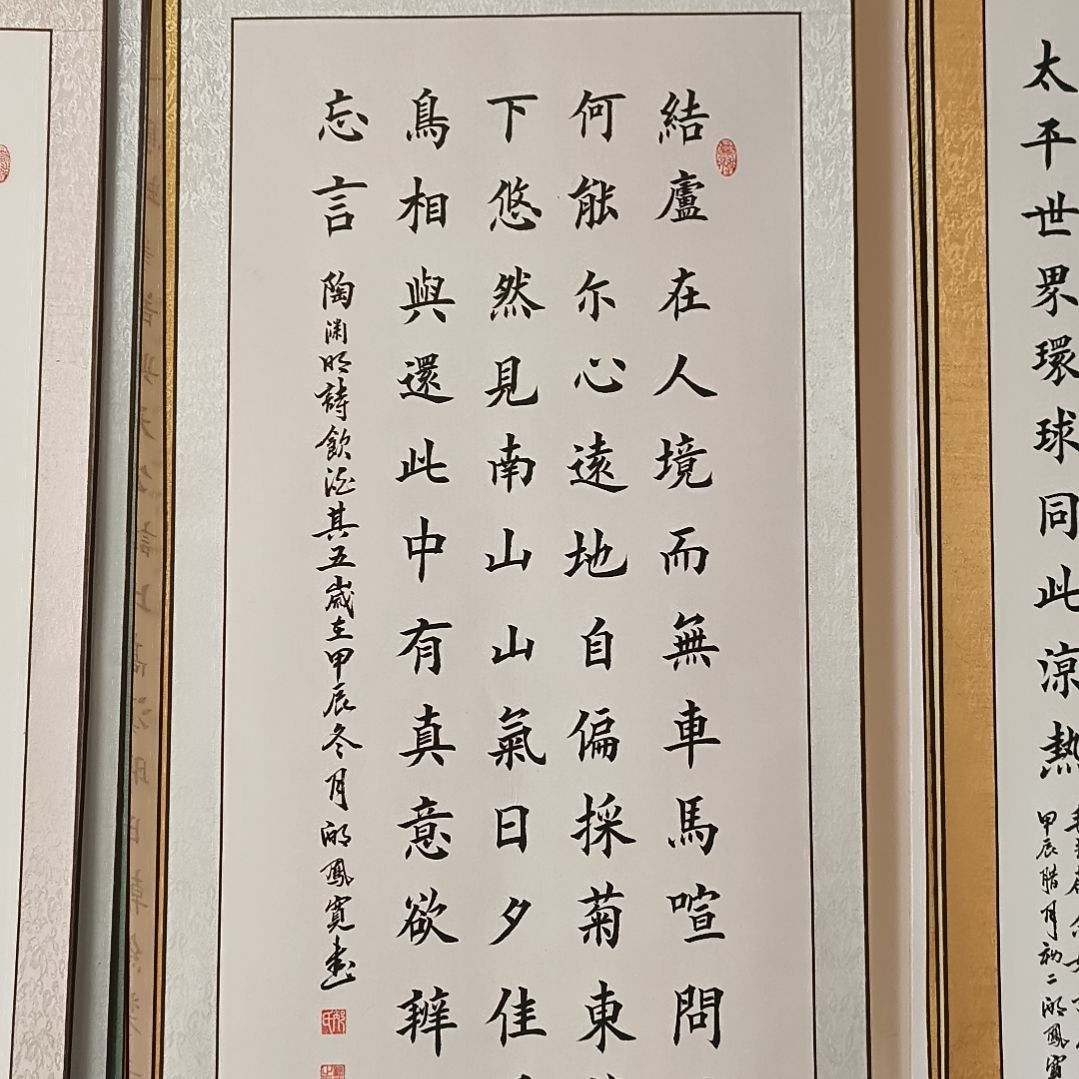 太平世界環球同此涼熱
甲辰腊月初二
結廬在人境而無車馬喧問
何能尔心遠地自偏採菊東
下悠然見南山山氣日夕佳
鳥相與還此中有真意欲辨
忘言
陶渊明詩飲酒其五歲在甲辰冬月
鳳寬書